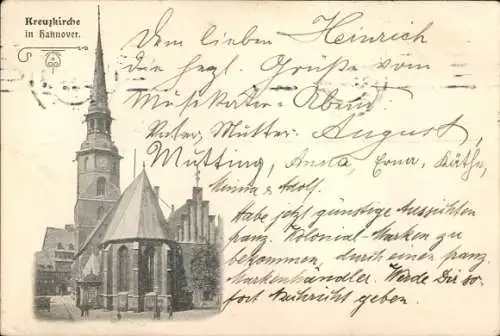 Kreuzkirche
in Hannover.
Dem lieben Heinrich
die herzl. Grüße vom
Musikater-Abend
Vater, Mutter, August,
Mutting, Anna, Erna, Käthe,
Minna & Adolf.
Habe jetzt günstige Aussichten
franz. Kolonial-Marken zu
bekommen, durch einen franz.
Markenhändler. Werde Dir so-
fort Nachricht geben.